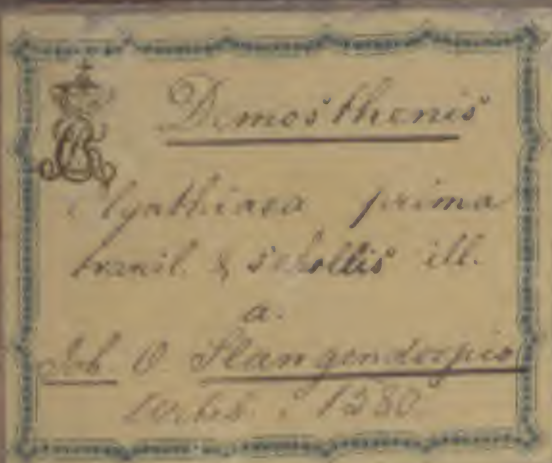 Demosthenis
Olynthiaca prima
transl. & scholiis ill.
a.
Joh. O. Flangendorpio
1580